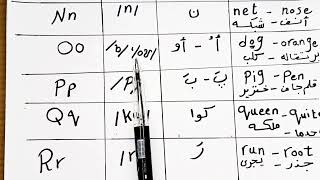 Nn /n/ ن net - nose
أنف - شبكة
Oo /ɒ/ أُ - أو dog - orange
برتقاله - كلب
Pp /P/ پَـ - بَـ Pig - Pen
قلم جاف - خنزير
Qq /Kw/ كوا queen - quite
ملكه
Rr /r رَ run - root
جذر - يجري